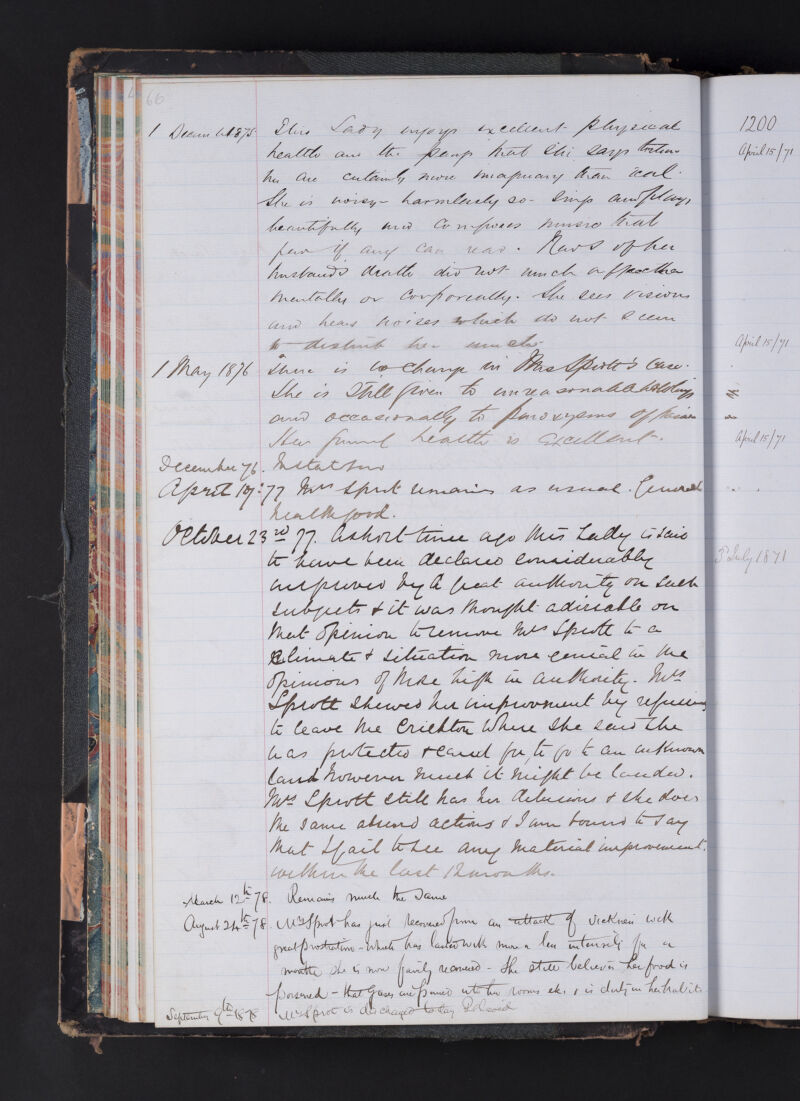 66
1 December 1875 This Lady enjoys excellent physical
health and the pangs that she says torture
her are certainly more imaginary than real.
She is noisy - harmlessly so - sings and plays
beautifully and composes music that
few if any can read. News of her
husband's death did not much affect her
mentally or corporeally. She sees visions
and hears noises which do not seem
to disturb her much.
1 May 1876 There is no change in Mrs Sprott's case.
She is still given to unreasonable
and occasionally to paroxysms of
Her general health is excellent.
December 76. In statu quo
April 19: 77 Mrs Sprot remains as usual. General
health good.
October 23rd 77. A short time ago this Lady is said
to have been declared considerably
improved by a great authority on such
subjects & it was thought advisable on
that opinion to remove Mrs Sprott to a
climate & situation more genial in the
opinions of those high in authority. Mrs
Sprott shewed her improvement by refusing
to leave the Crichton where she said she
was protected & cared for, to go to an unknown
land however much it might be lauded.
Mrs Sprott still has her delusions & she does
the same absurd actions & I am bound to say
that I fail to see any material improvement
within the last 12 months.
March 12th 78. Remains much the same
August 24th 78. Mrs Sprot has just recovered from an attack of sickness with
great prostration - which has lasted with more or less intensity for a
month she is now fairly recovered - She still believes her food is
poisoned - that gases are forced into her rooms etc. & is dirty in her habits
September 9th 1878 Mrs Sprot is discharged today Relieved
1200
April 15/71
April 15/71
April 15/71
July 1871